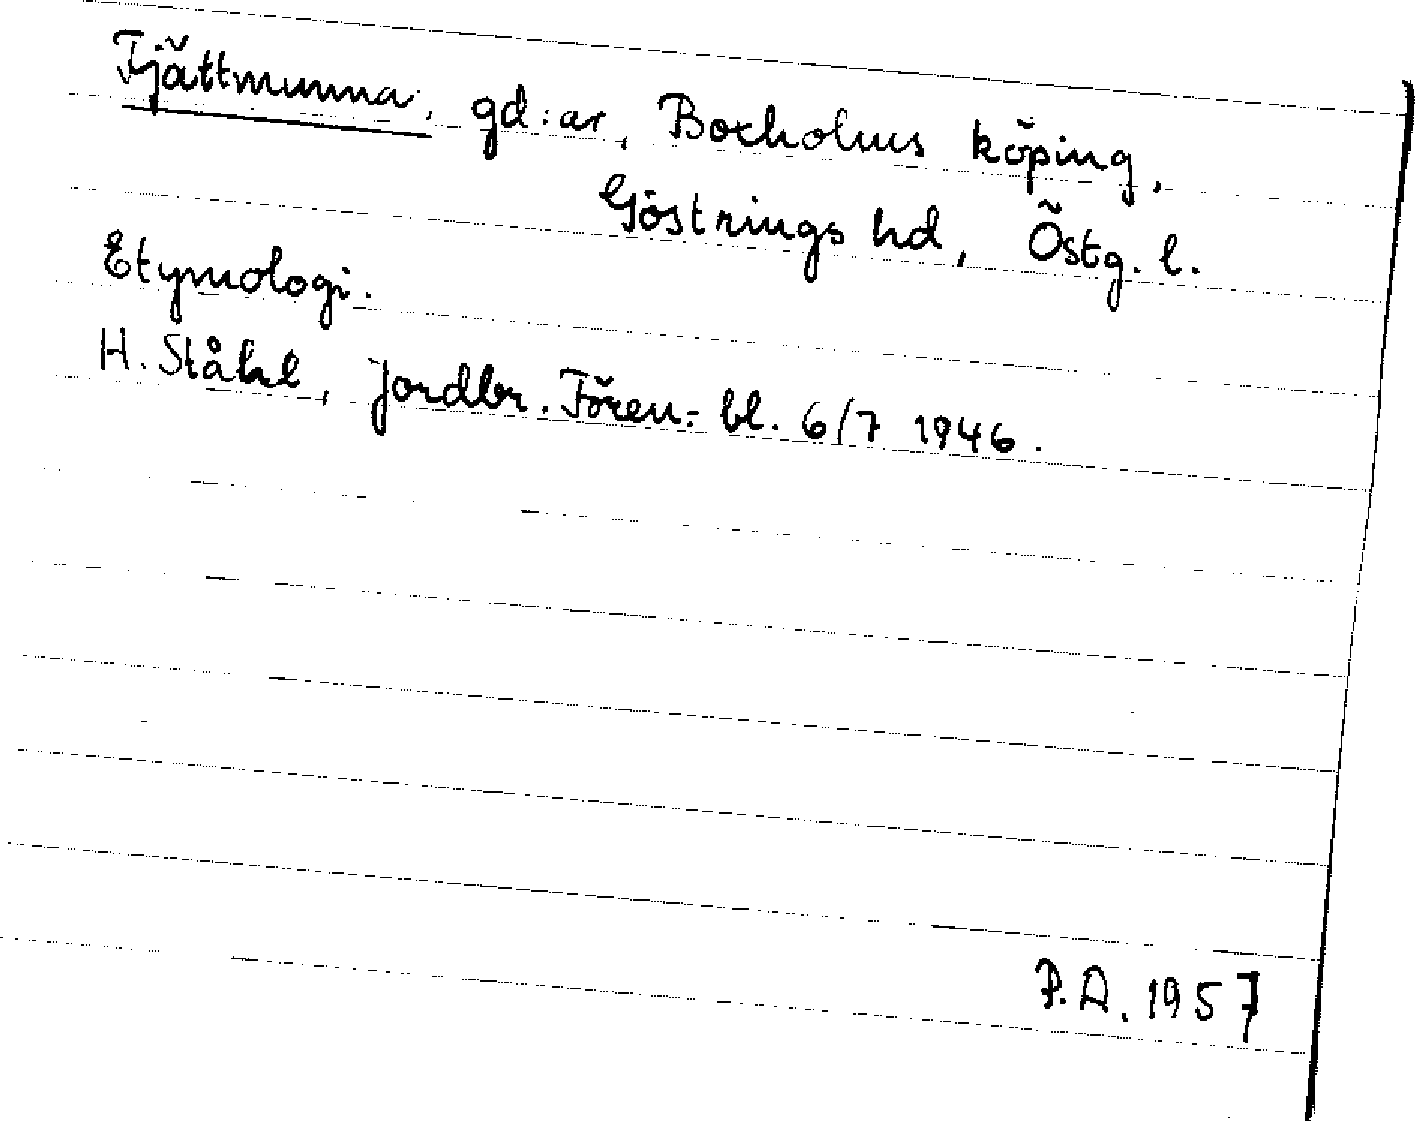 Fjättmunna, gd:ar, Boxholms köping,
Göstrings hd, Östg. l.
Etymologi.
H. Ståhl, Jordbr. Fören:s bl. 6/7 1946.
P.A. 1957